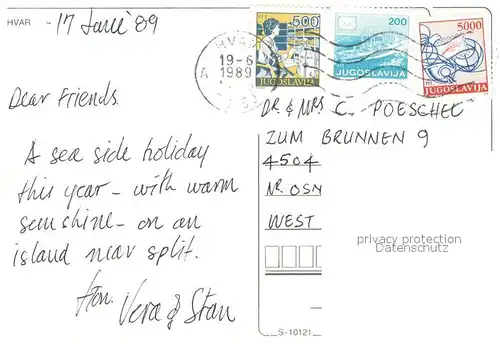 HVAR
17 June '89
Dear Friends.
A sea side holiday
this year – with warm
sunshine – on an
island near split.
from
Vera & Stan
HVAR
19-6
1989
A
PTT 500
JUGOSLAVIJA
200
JUGOSLAVIJA
5000
PTT
JUGOSLAVIJA
DR. & MRS C. POESCHEL
ZUM BRUNNEN 9
4504
NR. OSN
WEST
privacy protection
Datenschutz
S-10121